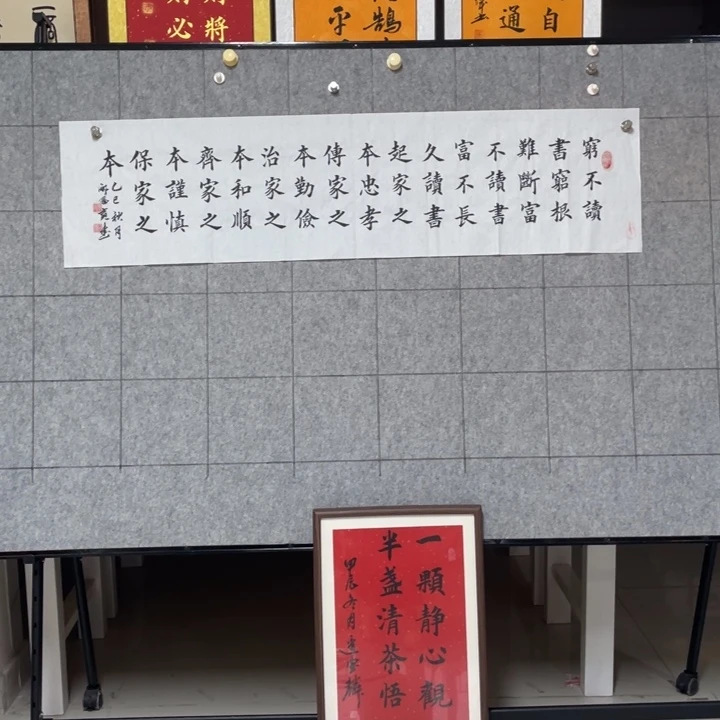 窮不讀
書窮根
難斷富
不讀書
富不長
久讀書
起家之
本忠孝
傳家之
本勤儉
治家之
本和順
齊家之
本謹慎
保家之
本
乙巳秋月
自
通
鵠
平
將
必
一顆靜心觀
半盞清茶悟
甲辰冬月